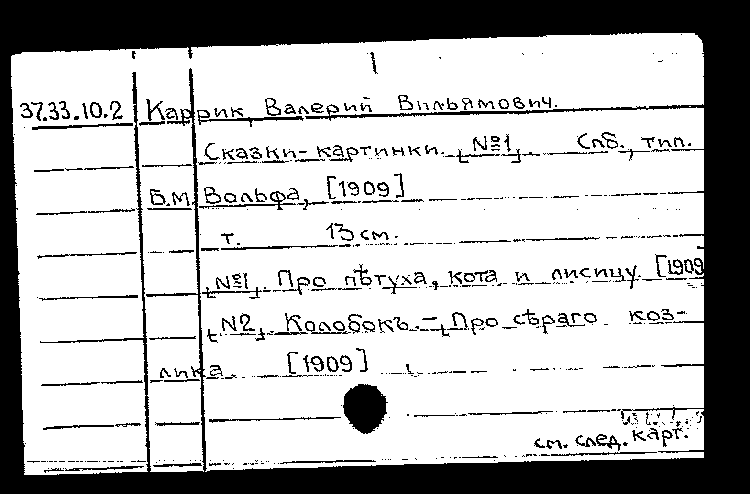 37.33.10.2 Каррик, Валерий Вильямович.
Сказки-картинки. [№1]. Спб., тип.
Б.М. Вольфа, [1909]
т. 13 см.
[№1]. Про пѣтуха, кота и лисицу [1909
[№2]. Колобокъ. – Про сѣраго коз-
лика. [1909]
см. след. карт.